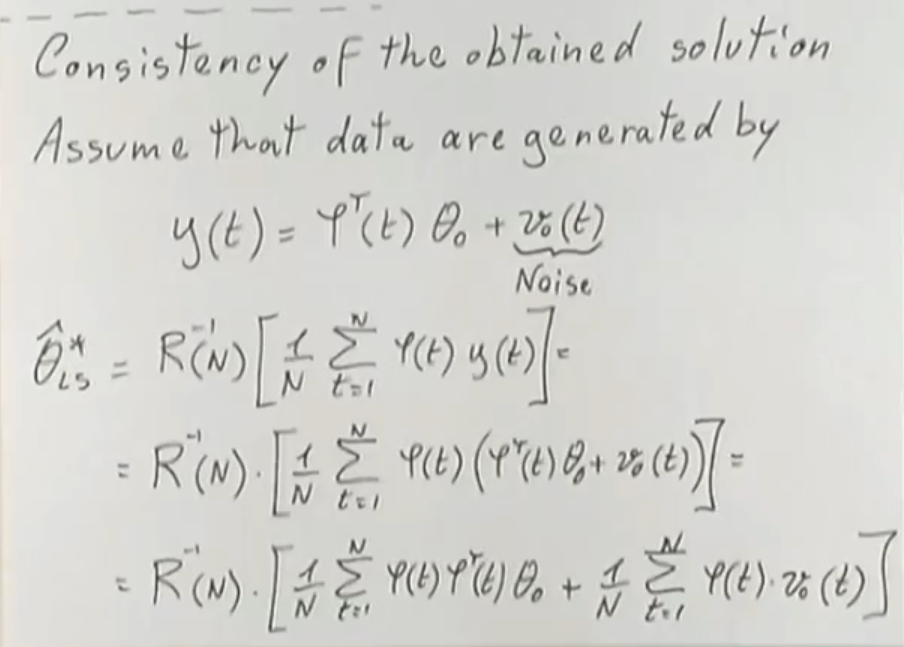 Consistency of the obtained solution
Assume that data are generated by
y(t) = φᵀ(t) θ₀ + v₀(t)
Noise
θ̂*_LS = R⁻¹(N) [1/N ∑_{t=1}^{N} φ(t) y(t)] =
= R⁻¹(N) · [1/N ∑_{t=1}^{N} φ(t) (φᵀ(t) θ₀ + v₀(t))] =
= R⁻¹(N) · [1/N ∑_{t=1}^{N} φ(t) φᵀ(t) θ₀ + 1/N ∑_{t=1}^{N} φ(t) · v₀(t)]